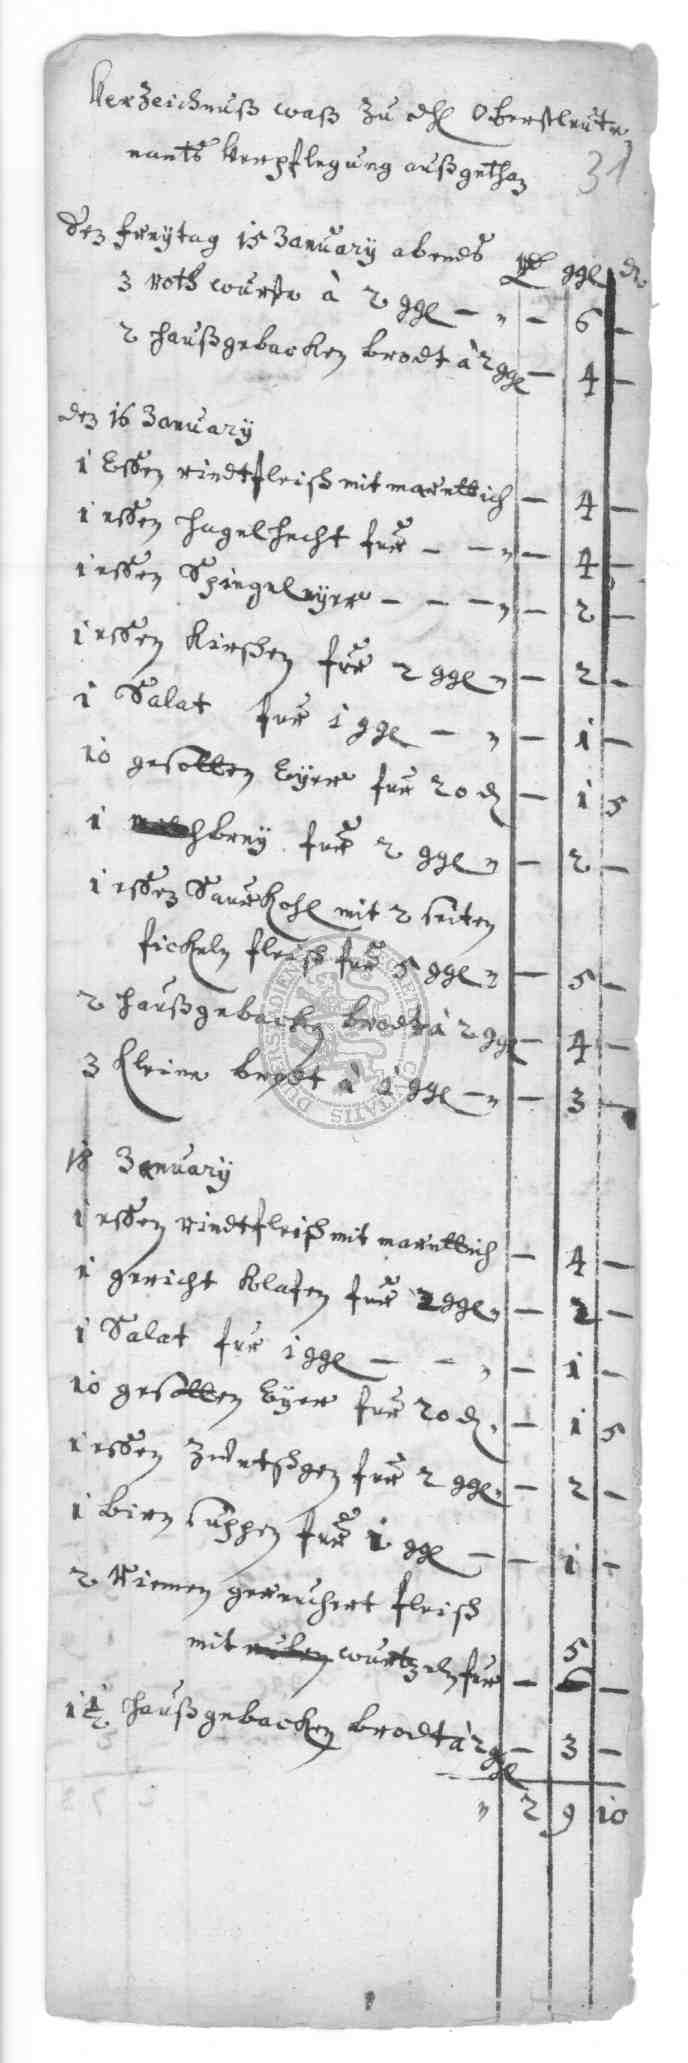 Verzeichnuß waß zu dh Oberstleute
nants Verpflegung außgethan
31
Den freytag 15 January abends ggl d
3 roth wurste à 2 ggl - " - 6 -
2 haußgebacken brodt à 2 ggl - 4 -
den 16 January
1 Essen rindtfleisch mit marettich - 4 -
1 essen hagelhecht fur - - " - 4 -
1 essen Spiegeleyer - - - " - 2 -
1 essen Kirschen fur 2 ggl " - 2 -
1 Salat fur 1 ggl - " - 1 -
10 gesotten Eyer fur 20 d - 1 5
1 milchbrey fur 2 ggl " - 2 -
1 essen Saurkohl mit 2 seiten
fickeln fleisch fur 5 ggl " - 5 -
2 haußgebacken brodt à 2 ggl - 4 -
3 kleine brodt à 1 ggl - " - 3 -
18 January
1 essen rindtfleisch mit marettich - 4 -
1 gericht fur 2 ggl " - 2 -
1 Salat fur 1 ggl - - " - 1 -
10 gesotten Eyer fur 20 d " - 1 5
1 essen Zwetschgen fur 2 ggl " - 2 -
1 birn suppen fur 1 ggl - - 1 -
2 Riemen gereuchert fleisch
mit wurtzeln fur - 5 -
1 1/2 haußgebacken brodt à 2 ggl - 3 -
" 2 9 10